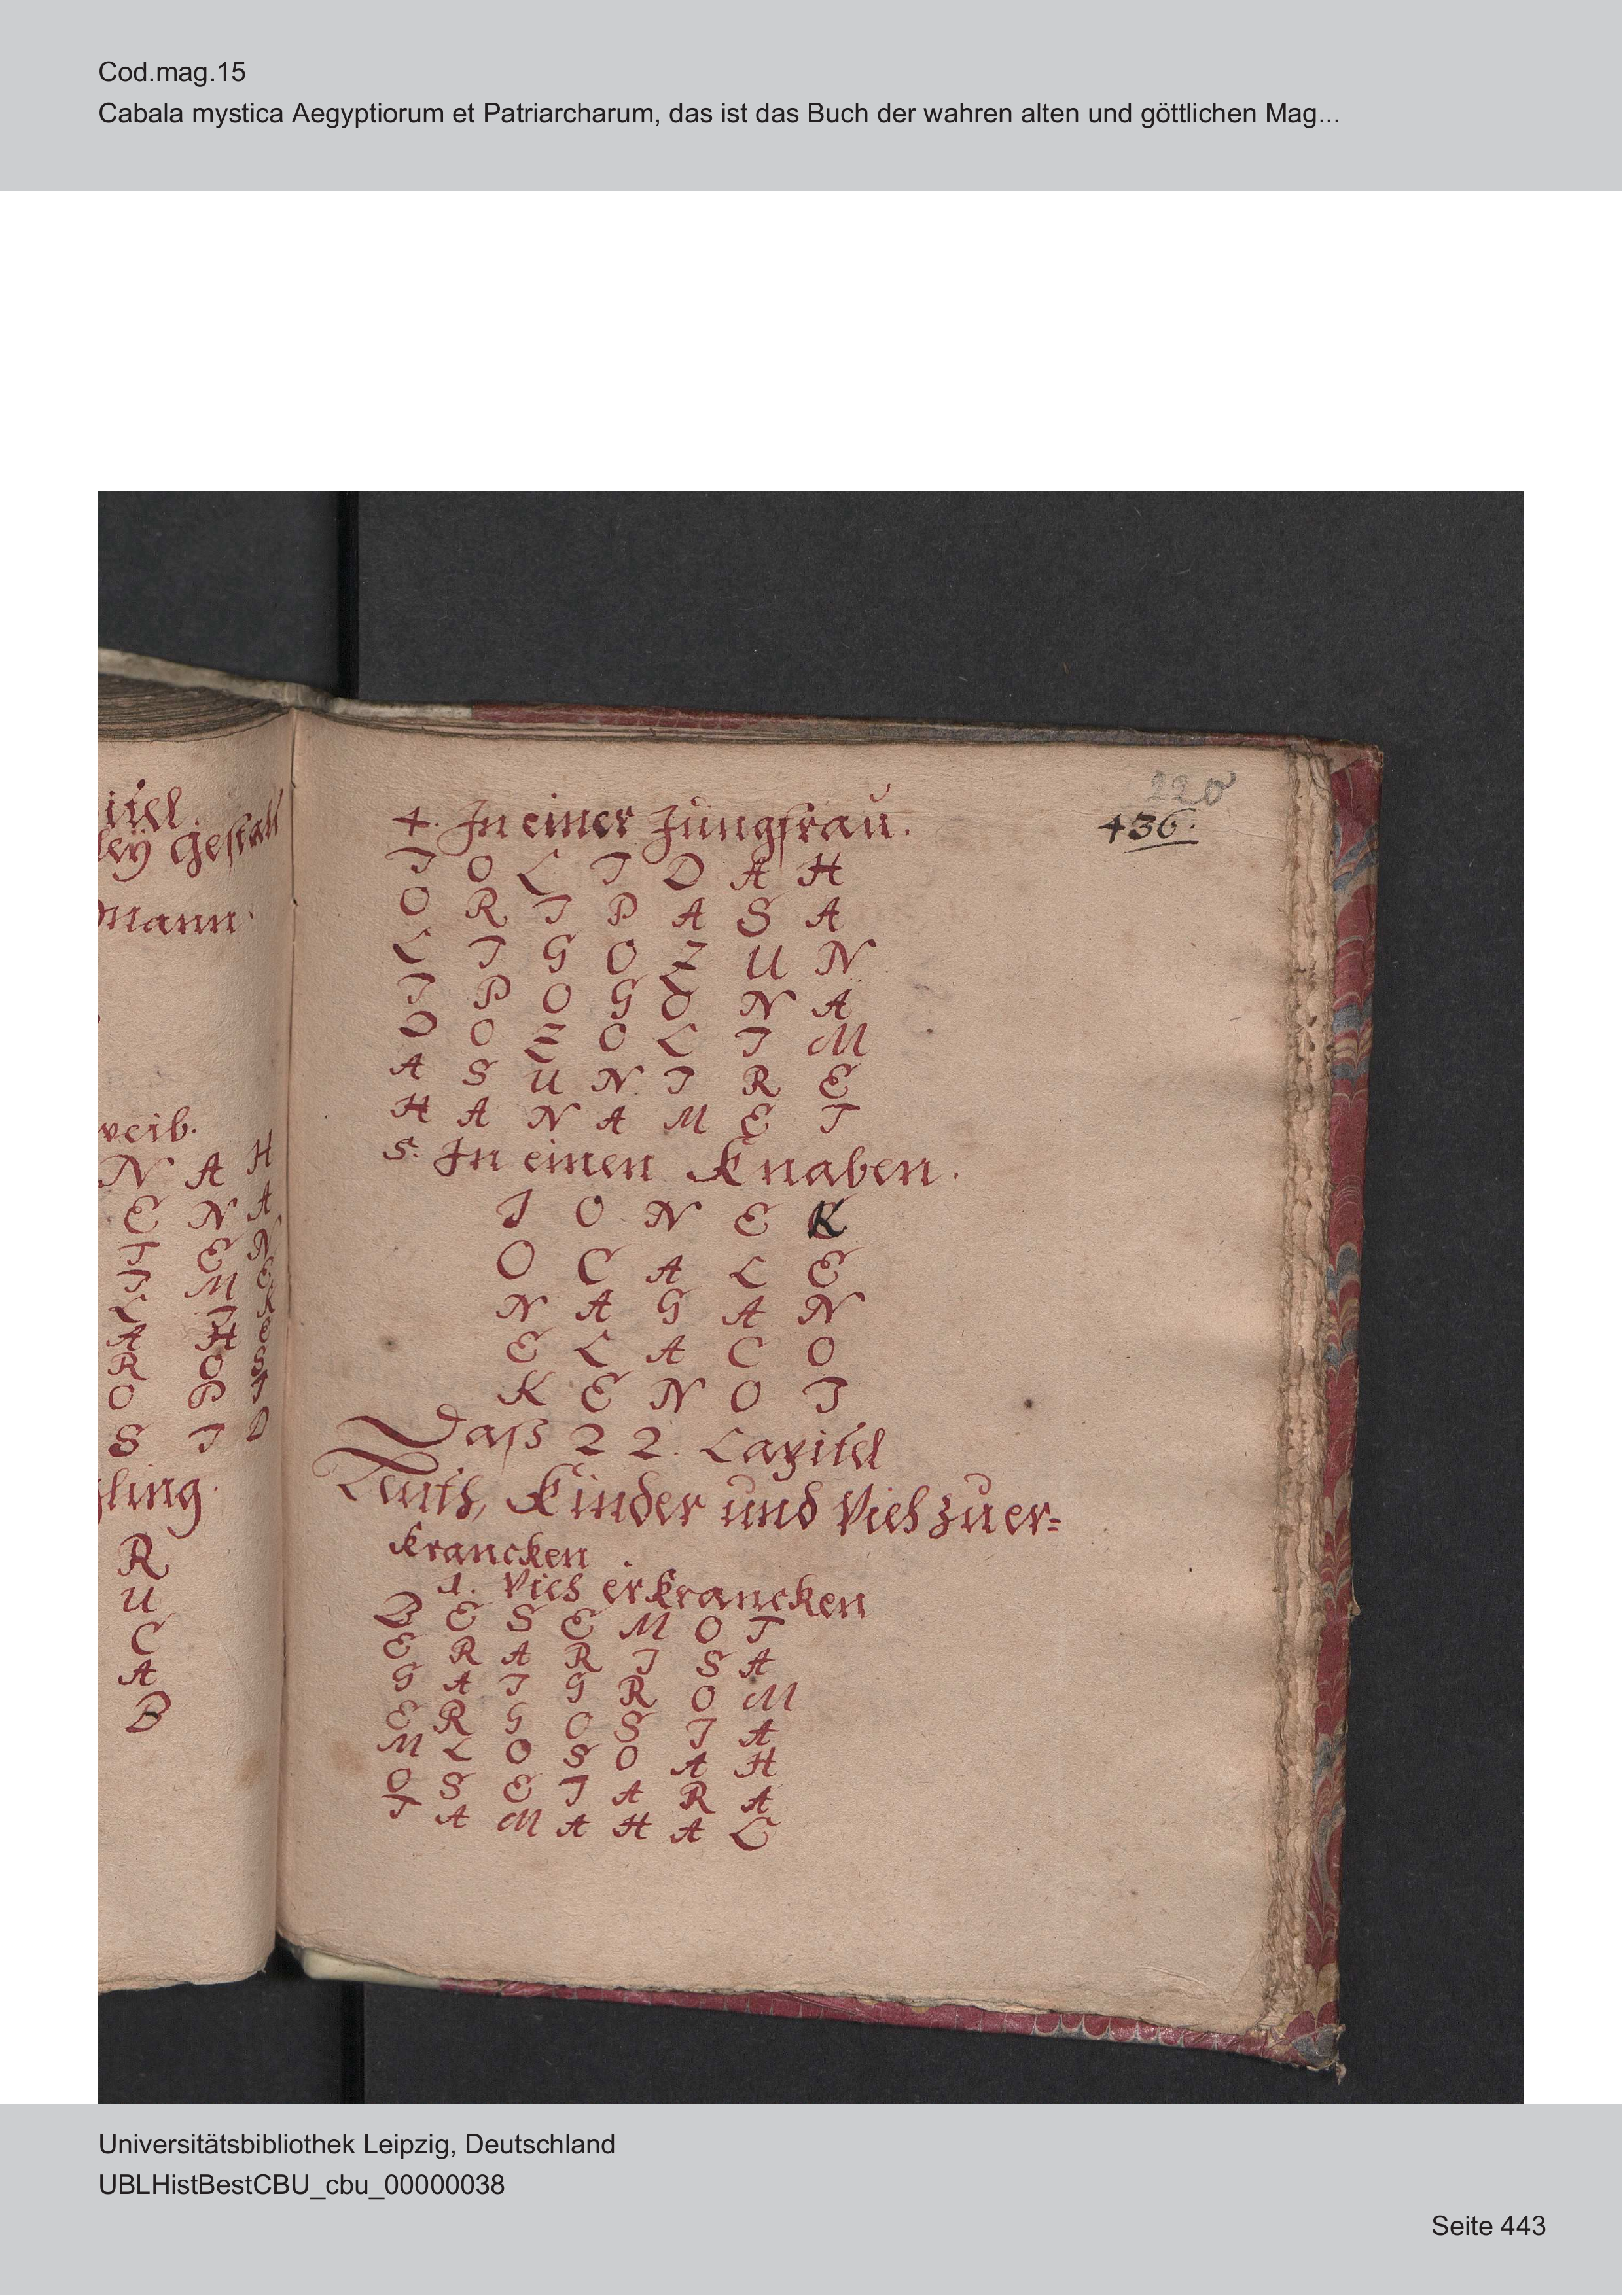 Cod.mag.15
Cabala mystica Aegyptiorum et Patriarcharum, das ist das Buch der wahren alten und göttlichen Mag...
220
436.
itel.
ley Gestalt
Mann.
weib.
N A H
E N A
I E N
I M E
L I K
A H E
R O S
O P I
S I D
gling.
R
U
C
A
B
4. In einer Jungfrau.
I O L I D A H
O R I P A S A
L I G O Z U N
I P O G O N A
D O Z O L I M
A S U N I R E
H A N A M E I
5. In einen Knaben.
I O N E K
O C A L E
N A G A N
E L A C O
K E N O I
Daß 22. Capitel
Leuth, Kinder und Vieh zu er=
krancken
1. Vieh erkrancken
B E S E M O T
E R A R I S A
G A I G R O M
E R G O S I A
M L O S O A H
O S E I A R A
T A M A H A C
Universitätsbibliothek Leipzig, Deutschland
UBLHistBestCBU_cbu_00000038
Seite 443